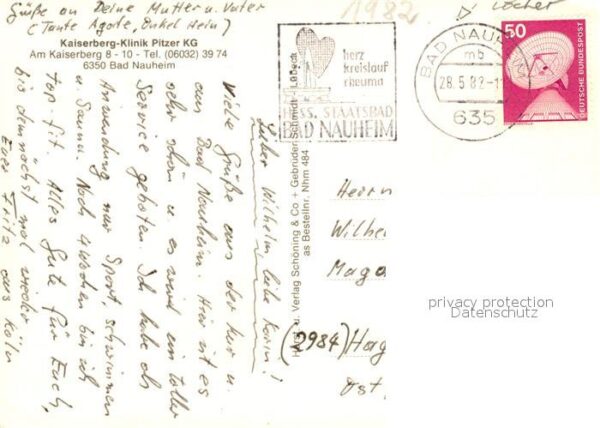 Grüße an Deine Mutter u. Vater
(Tante Agate, Onkel Hein)
1982
Löcher
Kaiserberg-Klinik Pitzer KG
Am Kaiserberg 8 - 10 - Tel. (06032) 39 74
6350 Bad Nauheim
herz
kreislauf
rheuma
HESS. STAATSBAD
BAD NAUHEIM
BAD NAUHEIM
mb
28.5.82-1
635
50
DEUTSCHE BUNDESPOST
Lieber Wilhelm, liebe Karin!
Viele Grüße aus der Kur u.
aus Bad Nauheim. Hier ist es
sehr schön u. es wird ein toller
Service geboten. Ich habe als
Anwendung nur Sport, schwimmen
u. Sauna. Noch 4 Wochen bin ich
top fit. Alles Gute für Euch,
bis demnächst mal wieder
Euer Fritz aus Köln
Verlag Schöning & Co + Gebrüder Schmidt - Lübeck
Bestellnr. Nhm 484
Herrn
Wilhe
Maga
(2984) Hag
Ost
privacy protection
Datenschutz